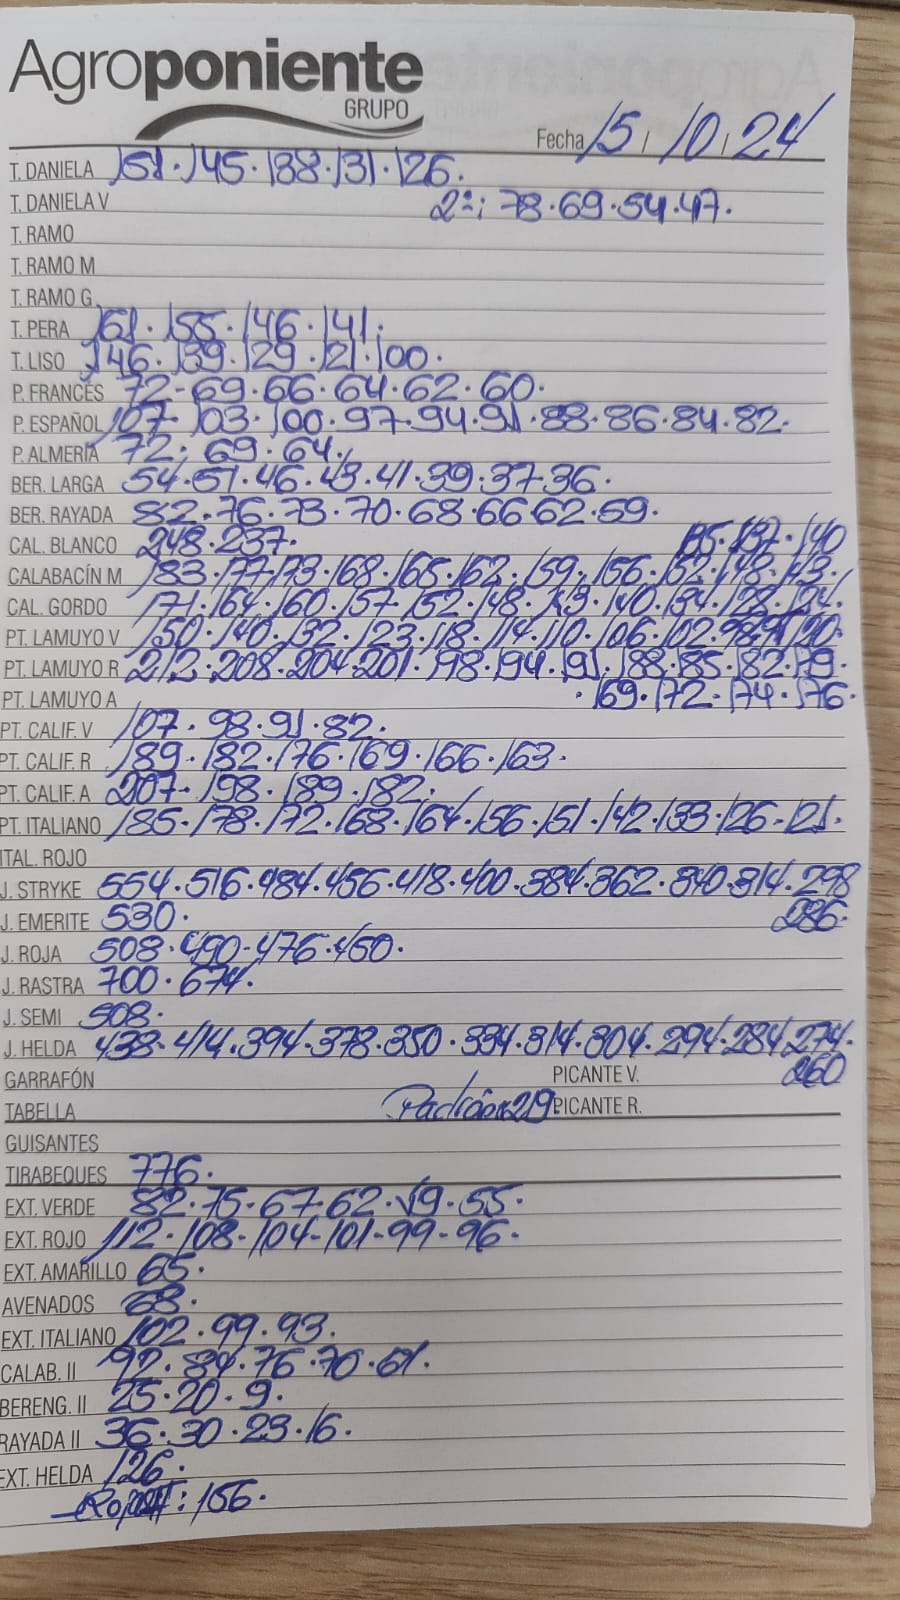 Agroponiente
GRUPO
Fecha 15 / 10 / 24
T. DANELA 151. 145. 138. 131. 126.
T. DANIELA V 2ª: 78. 69. 54. 47.
T. RAMO
T. RAMO M
T. RAMO G
T. PERA 161. 155. 146. 141.
T. LISO 146. 139. 129. 121. 100.
P. FRANCÉS 72. 69. 66. 64. 62. 60.
P. ESPAÑOL 107. 103. 100. 97. 94. 91. 88. 86. 84. 82.
P. ALMERÍA 72. 69. 64.
BER. LARGA 54. 51. 46. 43. 41. 39. 37. 36.
BER. RAYADA 82. 76. 73. 70. 68. 66 62. 59.
CAL. BLANCO 248. 237. 135. 137. 140
CALABACÍN M 183. 177. 173. 168. 165. 162. 159. 156. 152. 148. 143.
CAL. GORDO 171. 164. 160. 157. 152. 148. 143. 140. 134. 128. 124.
PT. LAMUYO V 150. 140. 132. 123. 118. 114. 110. 106. 102. 98. 120.
PT. LAMUYO R 212. 208. 204. 201. 198. 194. 191. 188. 185. 182. 179.
PT. LAMUYO A . 169. 172. 174. 176.
PT. CALIF. V 107. 98. 91. 82.
PT. CALIF. R 189. 182. 176. 169. 166. 163.
PT. CALIF. A 207. 198. 189. 182.
PT. ITALIANO 185. 178. 172. 168. 164. 156. 151. 142. 133. 126. 121.
ITAL. ROJO
J. STRYKE 554. 516. 484. 456. 418. 400. 384. 362. 340. 314. 298
J. EMERITE 530. 286.
J. ROJA 508. 490. 476. 450.
J. RASTRA 700. 674.
J. SEMI 508.
J. HELDA 438. 414. 394. 378. 350. 334. 314. 304. 294. 284. 274.
GARRAFÓN PICANTE V. 260
TABELLA Padrón 219. PICANTE R.
GUISANTES
TIRABEQUES 776.
EXT. VERDE 82. 75. 67. 62. 59. 55.
EXT. ROJO 112. 108. 104. 101. 99. 96.
EXT. AMARILLO 65.
AVENADOS 68.
EXT. ITALIANO 102. 99. 93.
CALAB. II 92. 84. 76. 70. 61.
BERENG. II 25. 20. 9.
RAYADA II 36. 30. 23. 16.
EXT. HELDA 126.
: 156.